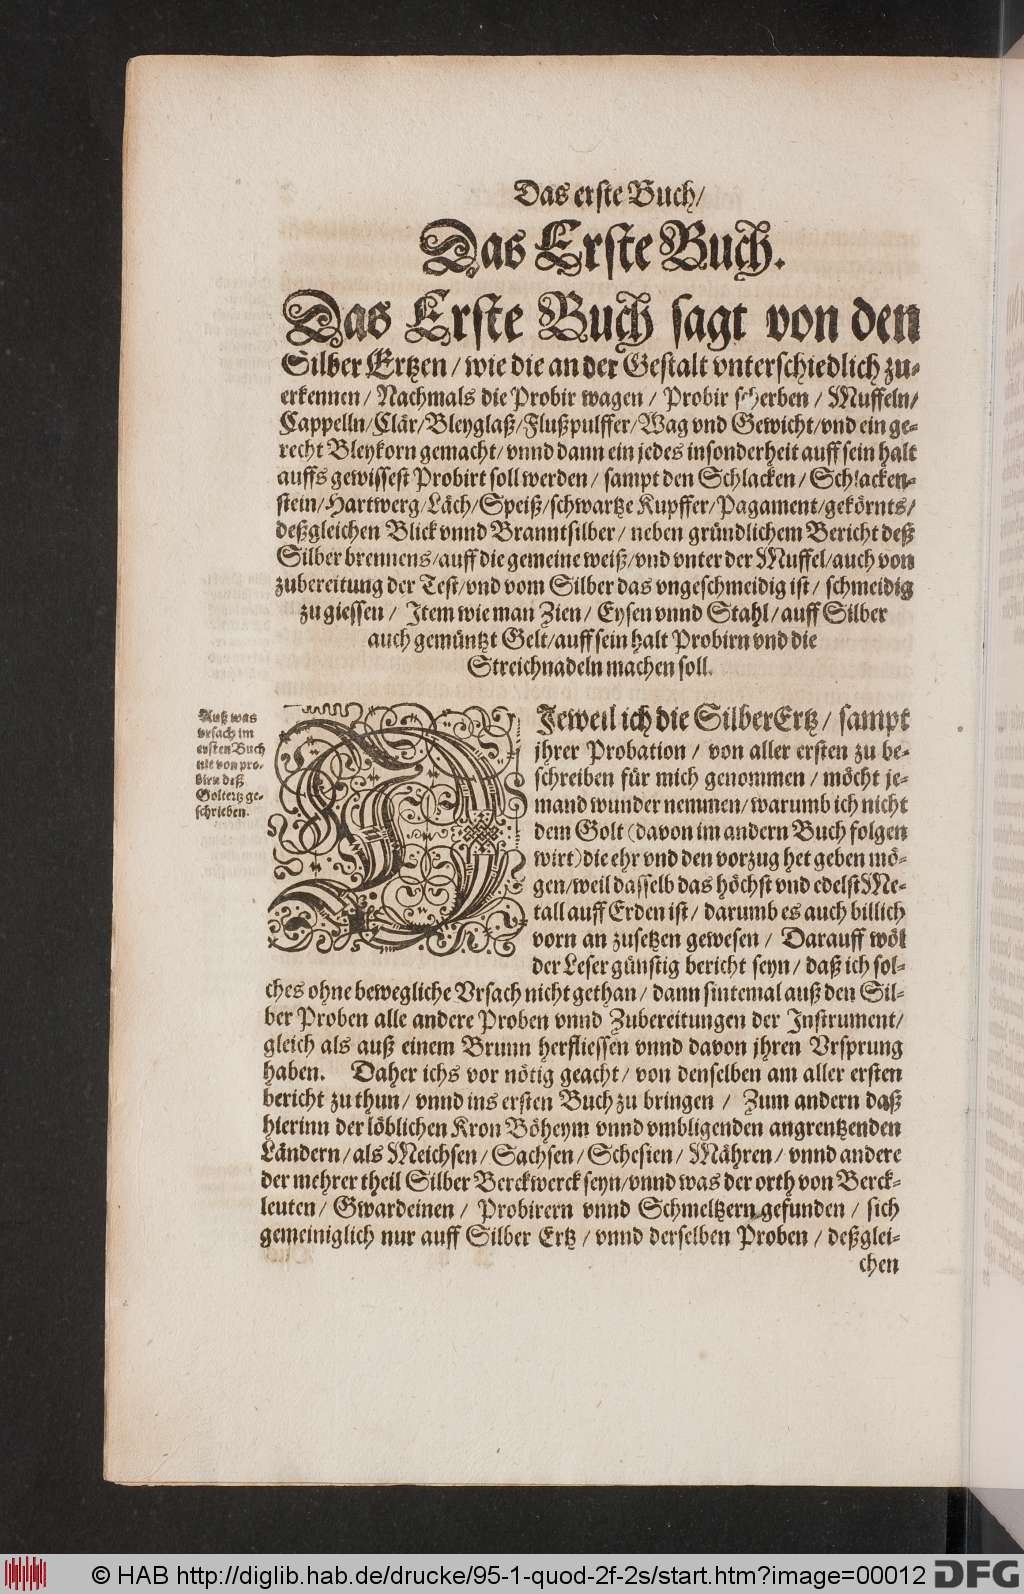 Das erste Buch/
Das Erste Buch.
Das Erste Buch sagt von den
Silber Ertzen / wie die an der Gestalt vnterschiedlich zu-
erkennen / Nachmals die Probir wagen / Probir scherben / Muffeln/
Cappelln/Clär/Bleyglaß/Flußpulffer/Wag vnd Gewicht/vnd ein ge-
recht Bleykorn gemacht/ vnnd dann ein jedes insonderheit auff sein halt
auffs gewissest Probirt soll werden / sampt den Schlacken / Schlacken-
stein/Hartwerg/Läch/Speiß/schwartze Kupffer/Pagament/gekörnts/
deßgleichen Blick vnnd Branntsilber / neben gründlichem Bericht deß
Silber brennens/auff die gemeine weiß/vnd vnter der Muffel/auch von
zubereitung der Test/vnd vom Silber das vngeschmeidig ist / schmeidig
zu giessen / Item wie man Zien / Eysen vnnd Stahl / auff Silber
auch gemüntzt Gelt/auff sein halt Probirn vnd die
Streichnadeln machen soll.
Auß was
vrsach im
ersten Buch
nit von pro-
birn deß
Goltertz ge-
schrieben.
DIeweil ich die SilberErtz / sampt
jhrer Probation / von aller ersten zu be-
schreiben für mich genommen / möcht je-
mand wunder nemmen/warumb ich nicht
dem Golt (davon im andern Buch folgen
wirt) die ehr vnd den vorzug het geben mö-
gen/weil dasselb das höchst vnd edelst Me-
tall auff Erden ist / darumb es auch billich
vorn an zusetzen gewesen / Darauff wöl
der Leser günstig bericht seyn / daß ich sol-
ches ohne bewegliche Vrsach nicht gethan / dann sintemal auß den Sil-
ber Proben alle andere Proben vnnd Zubereitungen der Instrument/
gleich als auß einem Brunn herfliessen vnnd davon jhren Vrsprung
haben. Daher ichs vor nötig geacht / von denselben am aller ersten
bericht zu thun / vnnd ins ersten Buch zu bringen / Zum andern daß
hierinn der löblichen Kron Böheym vnnd vmbligenden angrentzenden
Ländern / als Meichsen / Sachsen / Schesien / Mähren / vnnd andere
der mehrer theil Silber Berckwerck seyn/vnnd was der orth von Berck-
leuten / Gwardeinen / Probirern vnnd Schmeltzern gefunden / sich
gemeiniglich nur auff Silber Ertz / vnnd derselben Proben / deßglei-
chen
© HAB http://diglib.hab.de/drucke/95-1-quod-2f-2s/start.htm?image=00012 DFG